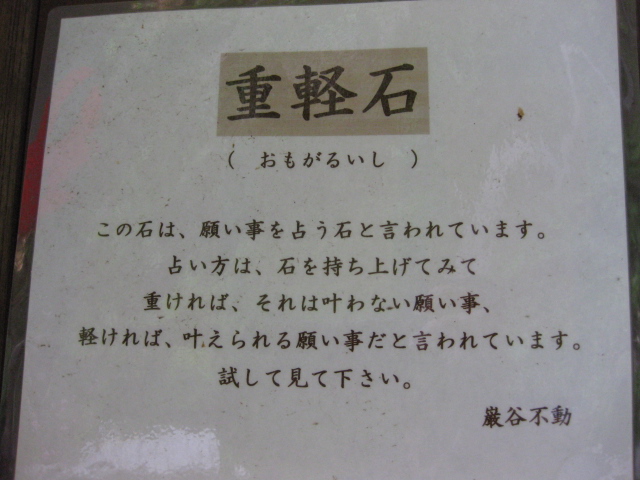 重軽石
( おもがるいし )
この石は、願い事を占う石と言われています。
占い方は、石を持ち上げてみて
重ければ、それは叶わない願い事、
軽ければ、叶えられる願い事だと言われています。
試して見て下さい。
巌谷不動